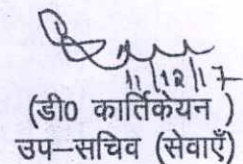 11/12/17
(डी0 कार्तिकेयन )
उप–सचिव (सेवाएँ)